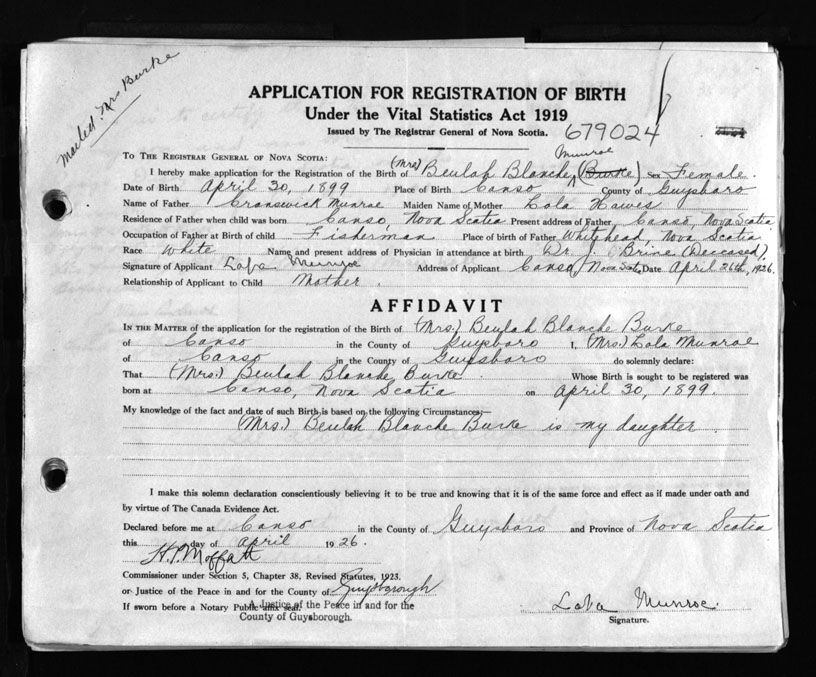 Mailed. Mrs Burke
APPLICATION FOR REGISTRATION OF BIRTH
Under the Vital Statistics Act 1919
Issued by The Registrar General of Nova Scotia. 679024
TO THE REGISTRAR GENERAL OF NOVA SCOTIA:
Munroe
I hereby make application for the Registration of the Birth of (Mrs) Beulah Blanche (Burke) Sex Female.
Date of Birth April 30, 1899 Place of Birth Canso County of Guysboro
Name of Father Cranswick Munroe Maiden Name of Mother Lola Hawes
Residence of Father when child was born Canso, Nova Scotia Present address of Father Canso, Nova Scotia
Occupation of Father at Birth of child Fisherman Place of birth of Father Whitehead, Nova Scotia
Race White Name and present address of Physician in attendance at birth Dr. J. Brine (Deceased).
Signature of Applicant Lola Munroe Address of Applicant Canso, Nova Sct. Date April 26th, 1926.
Relationship of Applicant to Child Mother.
AFFIDAVIT
IN THE MATTER of the application for the registration of the Birth of (Mrs.) Beulah Blanche Burke
of Canso in the County of Guysboro I, (Mrs.) Lola Munroe
of Canso in the County of Guysboro do solemnly declare:
That (Mrs.) Beulah Blanche Burke Whose Birth is sought to be registered was
born at Canso, Nova Scotia on April 30, 1899.
My knowledge of the fact and date of such Birth is based on the following Circumstances;—
(Mrs.) Beulah Blanche Burke is my daughter.
I make this solemn declaration conscientiously believing it to be true and knowing that it is of the same force and effect as if made under oath and
by virtue of The Canada Evidence Act.
Declared before me at Canso in the County of Guysboro and Province of Nova Scotia
this day of April 1926.
H.P. Moffatt
Commissioner under Section 5, Chapter 38, Revised Statutes, 1923.
or Justice of the Peace in and for the County of Guysborough
If sworn before a Notary Public affix seal.
A Justice of the Peace in and for the
County of Guysborough.
Lola Munroe.
Signature.